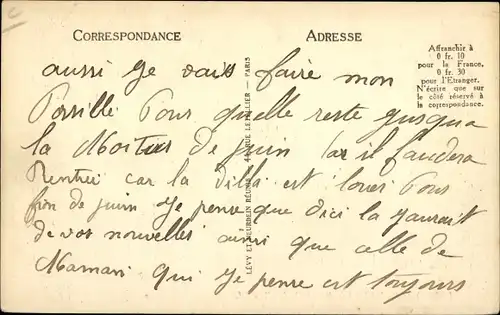 CORRESPONDANCE
ADRESSE
Affranchir à
0 fr. 10
pour la France.
0 fr. 30
pour l'Etranger.
N'écrire que sur
le côté réservé à
la correspondance.
aussi je vais faire mon
Possille Pour quelle reste jusqua
la Moitus de juin Car il faudera
Rentrée car la villa est louer Pour
fin de juin je pense que d'ici la jaurait
de vos nouvelles ainsi que celle de
Maman qui je pense est toujours
LÉVY ET NEURDEIN RÉUNIS 44, RUE LETELLIER — PARIS